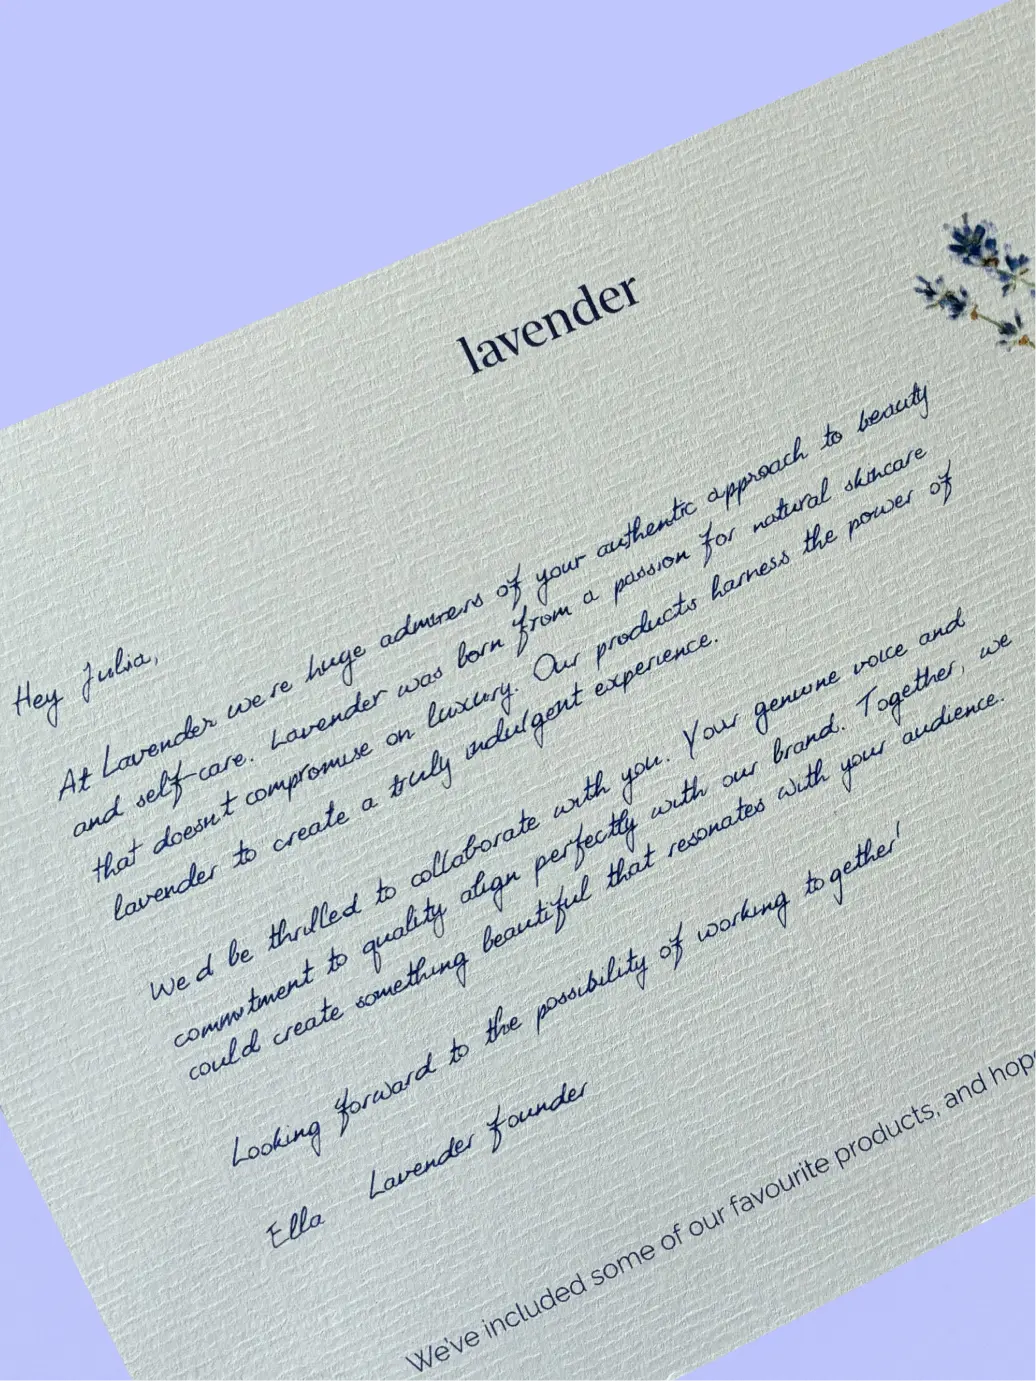 lavender
Hey Julia,
At Lavender we're huge admirers of your authentic approach to beauty
and self-care. Lavender was born from a passion for natural skincare
that doesn't compromise on luxury. Our products harness the power of
lavender to create a truly indulgent experience.
We'd be thrilled to collaborate with you. Your genuine voice and
commitment to quality align perfectly with our brand. Together, we
could create something beautiful that resonates with your audience.
Looking forward to the possibility of working together!
Ella Lavender founder
We've included some of our favourite products, and hop